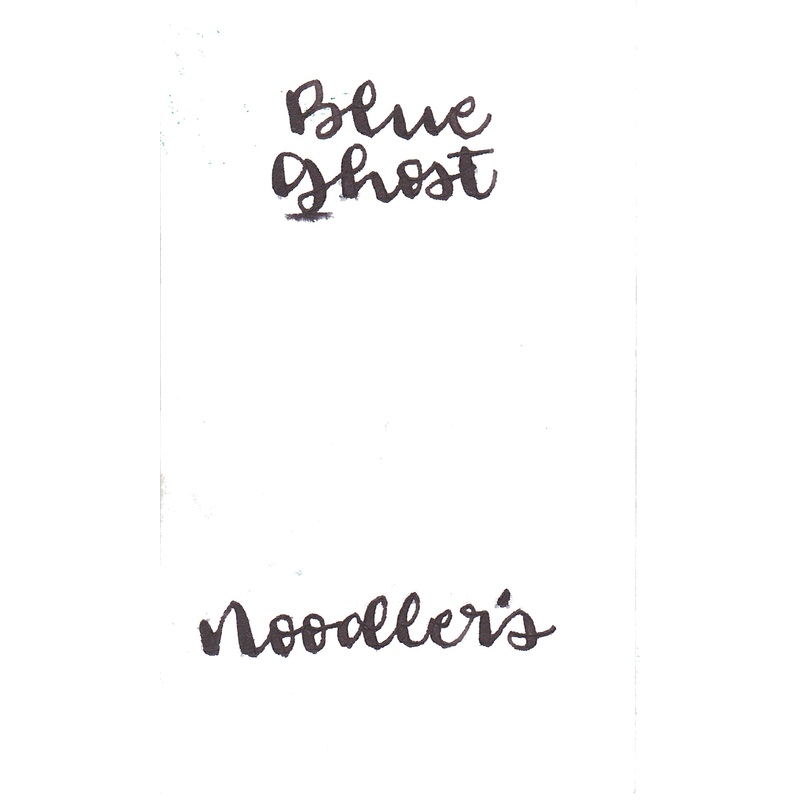 Blue
Ghost
Noodler's